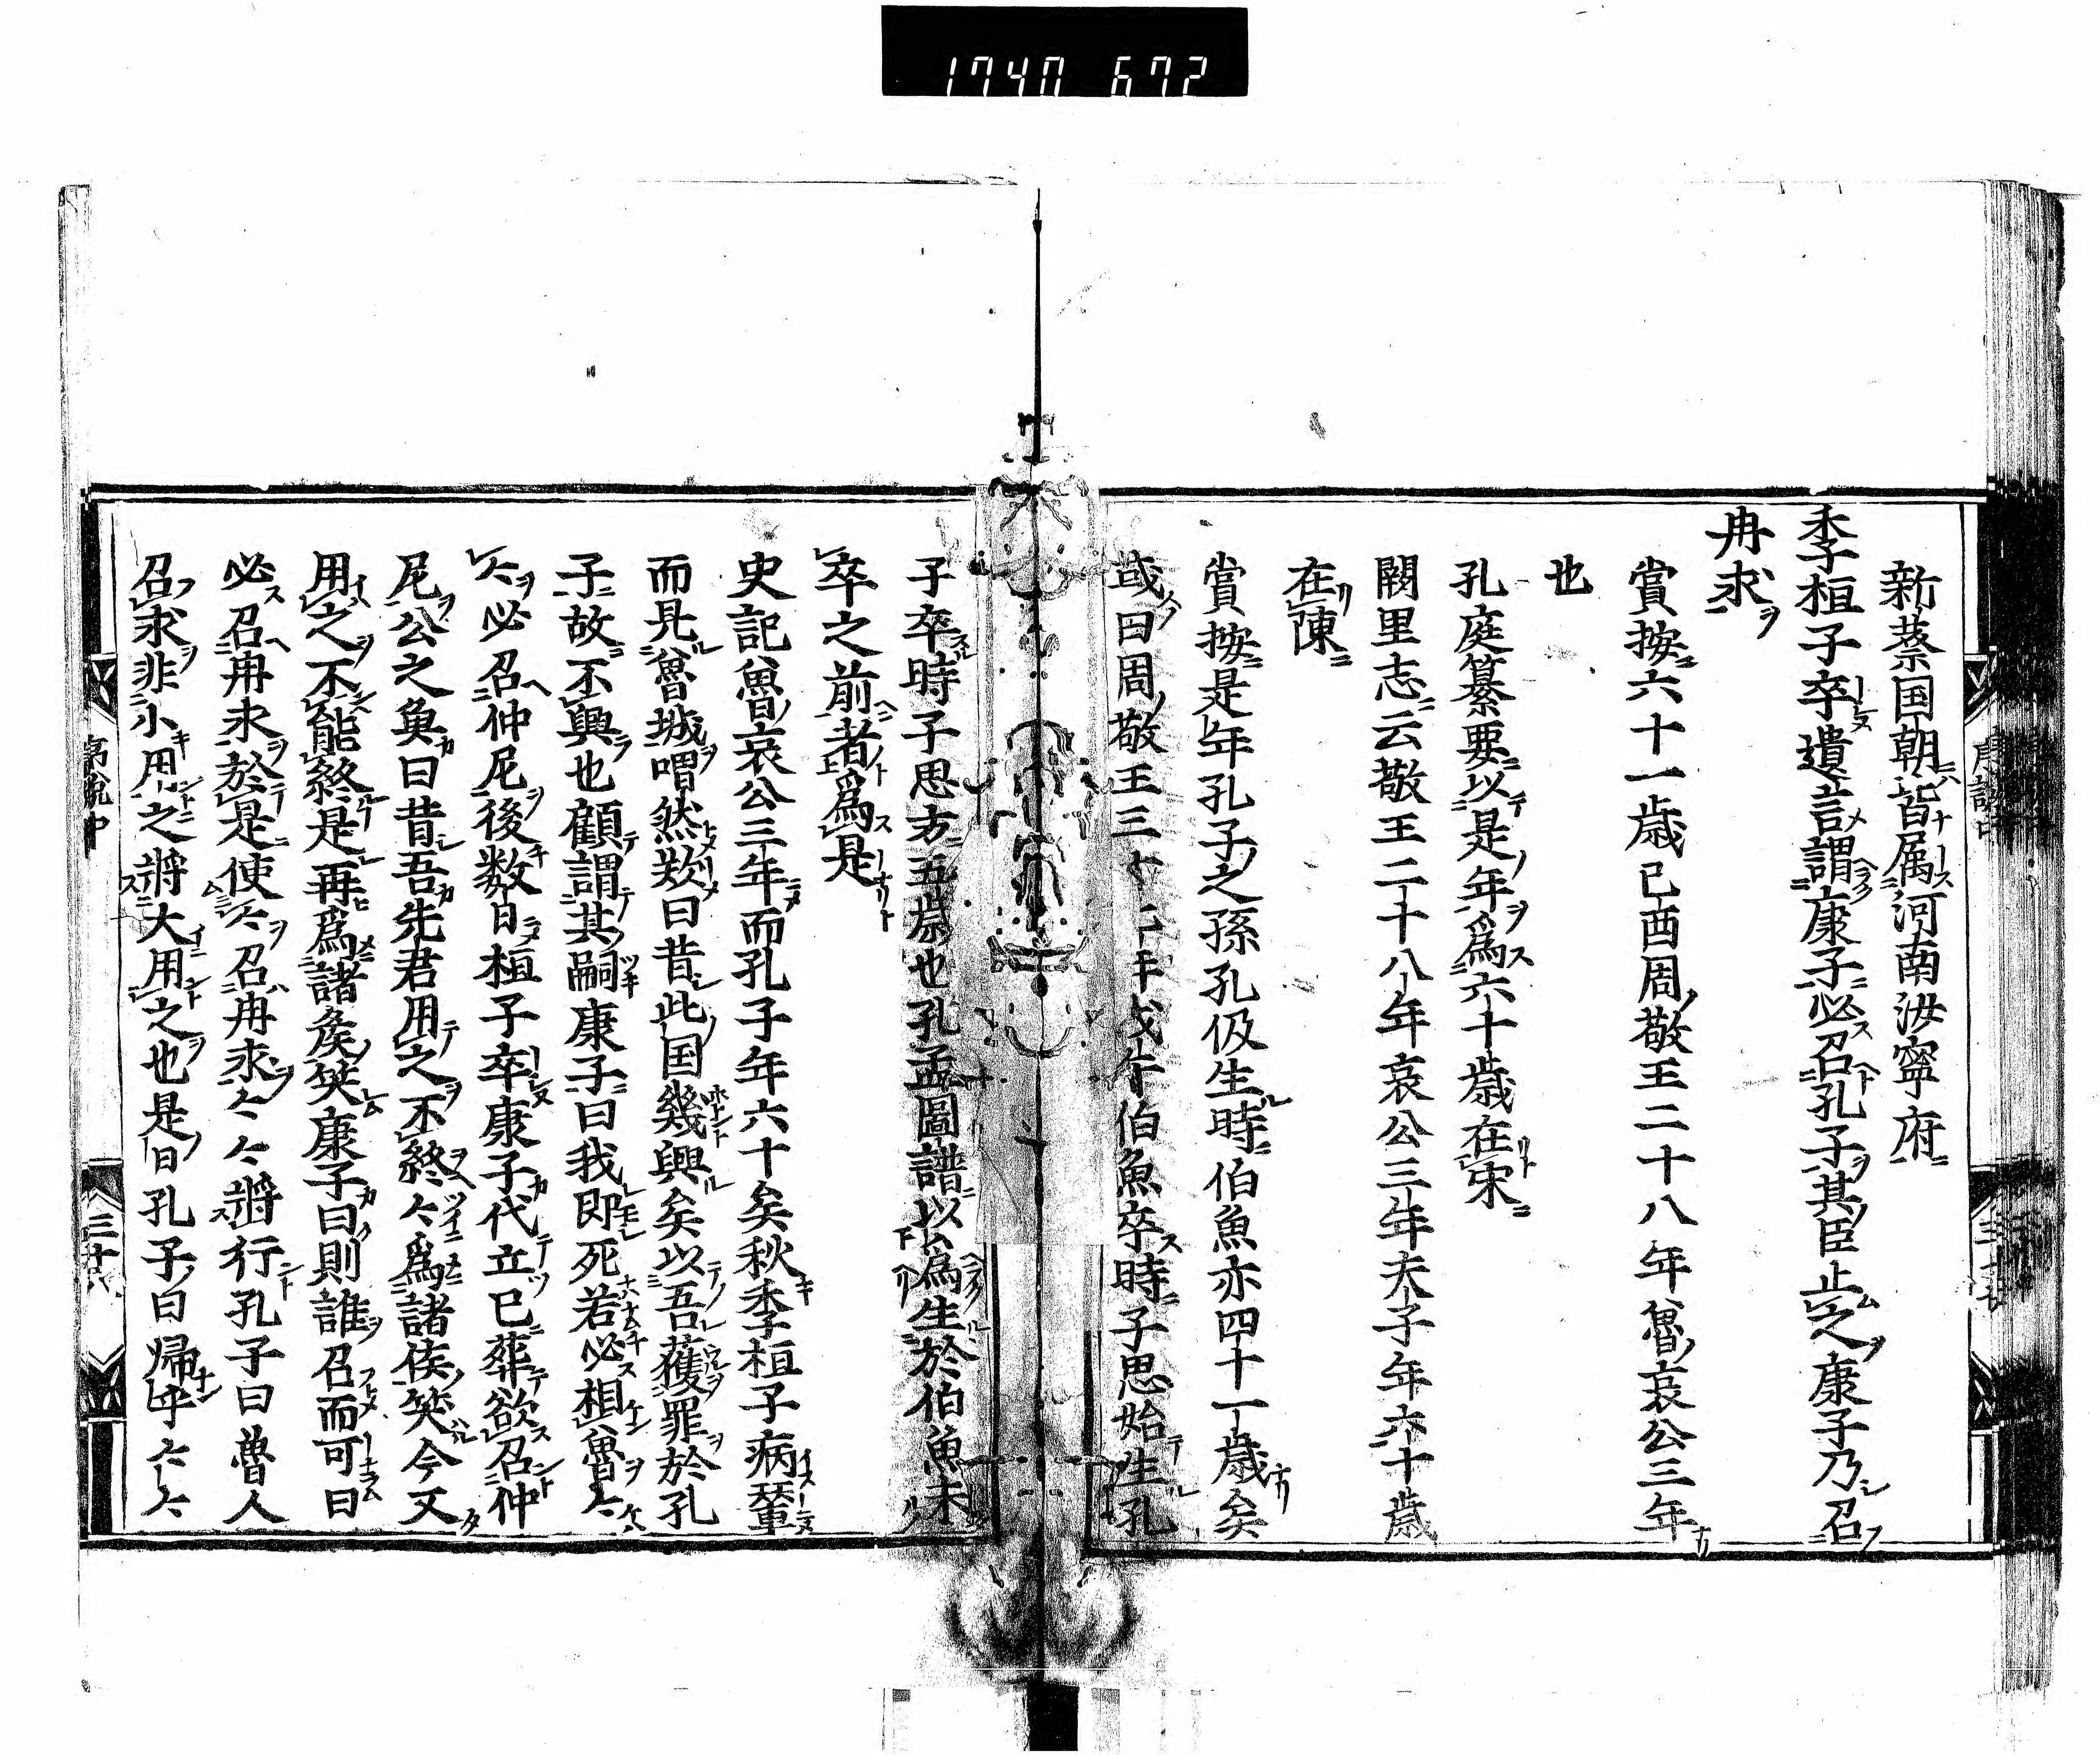 1740 672
新蔡国朝皆属河南汝寧府
季桓子卒遺言謂康子必召孔子其臣止之康子乃召
冉求
賞按六十一歳己酉周敬王二十八年魯哀公三年
也
孔庭纂要以是年為六十歳在宋
闕里志云敬王二十八年哀公三年夫子年六十歳
在陳
賞按是年孔子之孫孔伋生時伯魚亦四十一歳矣
或曰周敬王三十七年戊午伯魚卒時子思始生孔
子卒時子思方五歳也孔孟圖譜以為生於伯魚未
卒之前者為是
史記魯哀公三年而孔子年六十矣秋季桓子病輦
而見魯城喟然歎曰昔此国幾興矣以吾獲罪於孔
子故不興也顧謂其嗣康子曰我即死若必相魯〻
〻必召仲尼後数日桓子卒康子代立已葬欲召仲
尼公之魚曰昔吾先君用之不終〻為諸侯笑今又
用之不能終是再為諸侯笑康子曰則誰召而可曰
必召冉求於是使〻召冉求〻〻將行孔子曰魯人
召求非小用之將大用之也是日孔子曰帰乎〻〻
序説中
三十八